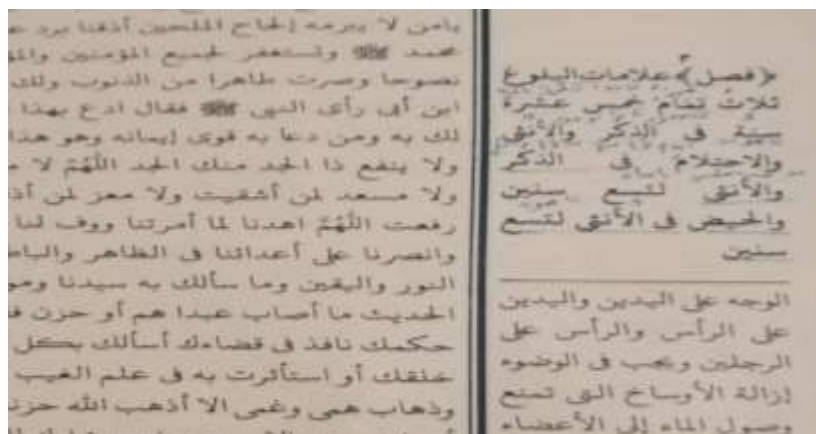 ﴿فصل﴾ علامات البلوغ
ثلاث تمام خمس عشرة
سنة في الذكر والأنثى
والاحتلام في الذكر
والأنثى لتسع سنين
والحيض في الأنثى لتسع
سنين
الوجه على اليدين واليدين
على الرأس والرأس على
الرجلين ويجب في الوضوء
إزالة الأوساخ التى تمنع
وصول الماء إلى الأعضاء
يامن لا يبرمه إلحاح الملحين أذقنا برد
محمد ﷺ ونستغفر لجميع المؤمنين
نصوحا وصرت طاهرا من الذنوب ولك
ابن أبى رأى النبى ﷺ فقال ادع بهذا
لك به ومن دعا به قوى إيمانه وهو هذا
ولا ينفع ذا الجد منك الجد اللهم لا
ولا مسعد لمن أشقيت ولا معز لمن
رفعت اللهم اهدنا لما أمرتنا ووف لنا
وانصرنا على أعدائنا في الظاهر
النور واليقين وما سألك به سيدنا
الحديث ما أصاب عبدا هم أو حزن
حكمك نافذ في قضاءك أسألك بكل
خلقك أو استأثرت به في علم الغيب
وذهاب همى وغمى الا أذهب الله